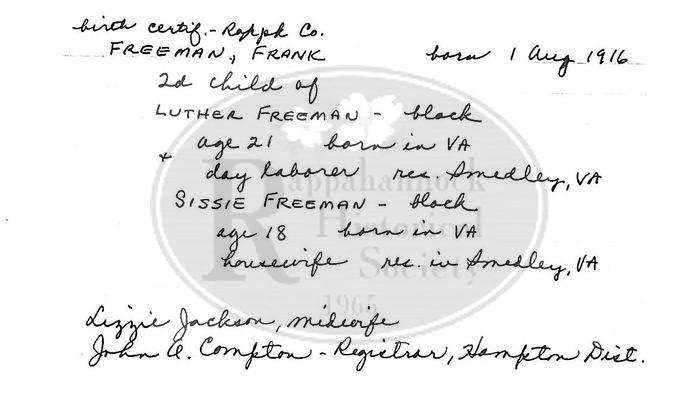 birth certif. - Rappk Co.
FREEMAN, FRANK born 1 Aug 1916
2d child of
LUTHER FREEMAN - black
age 21 born in VA
day laborer res. Smedley, VA
+
SISSIE FREEMAN - black
age 18 born in VA
housewife res. in Smedley, VA
Lizzie Jackson, midwife
John A. Compton - Registrar, Hampton Dist.
Rappahannock
Historical
Society
1965